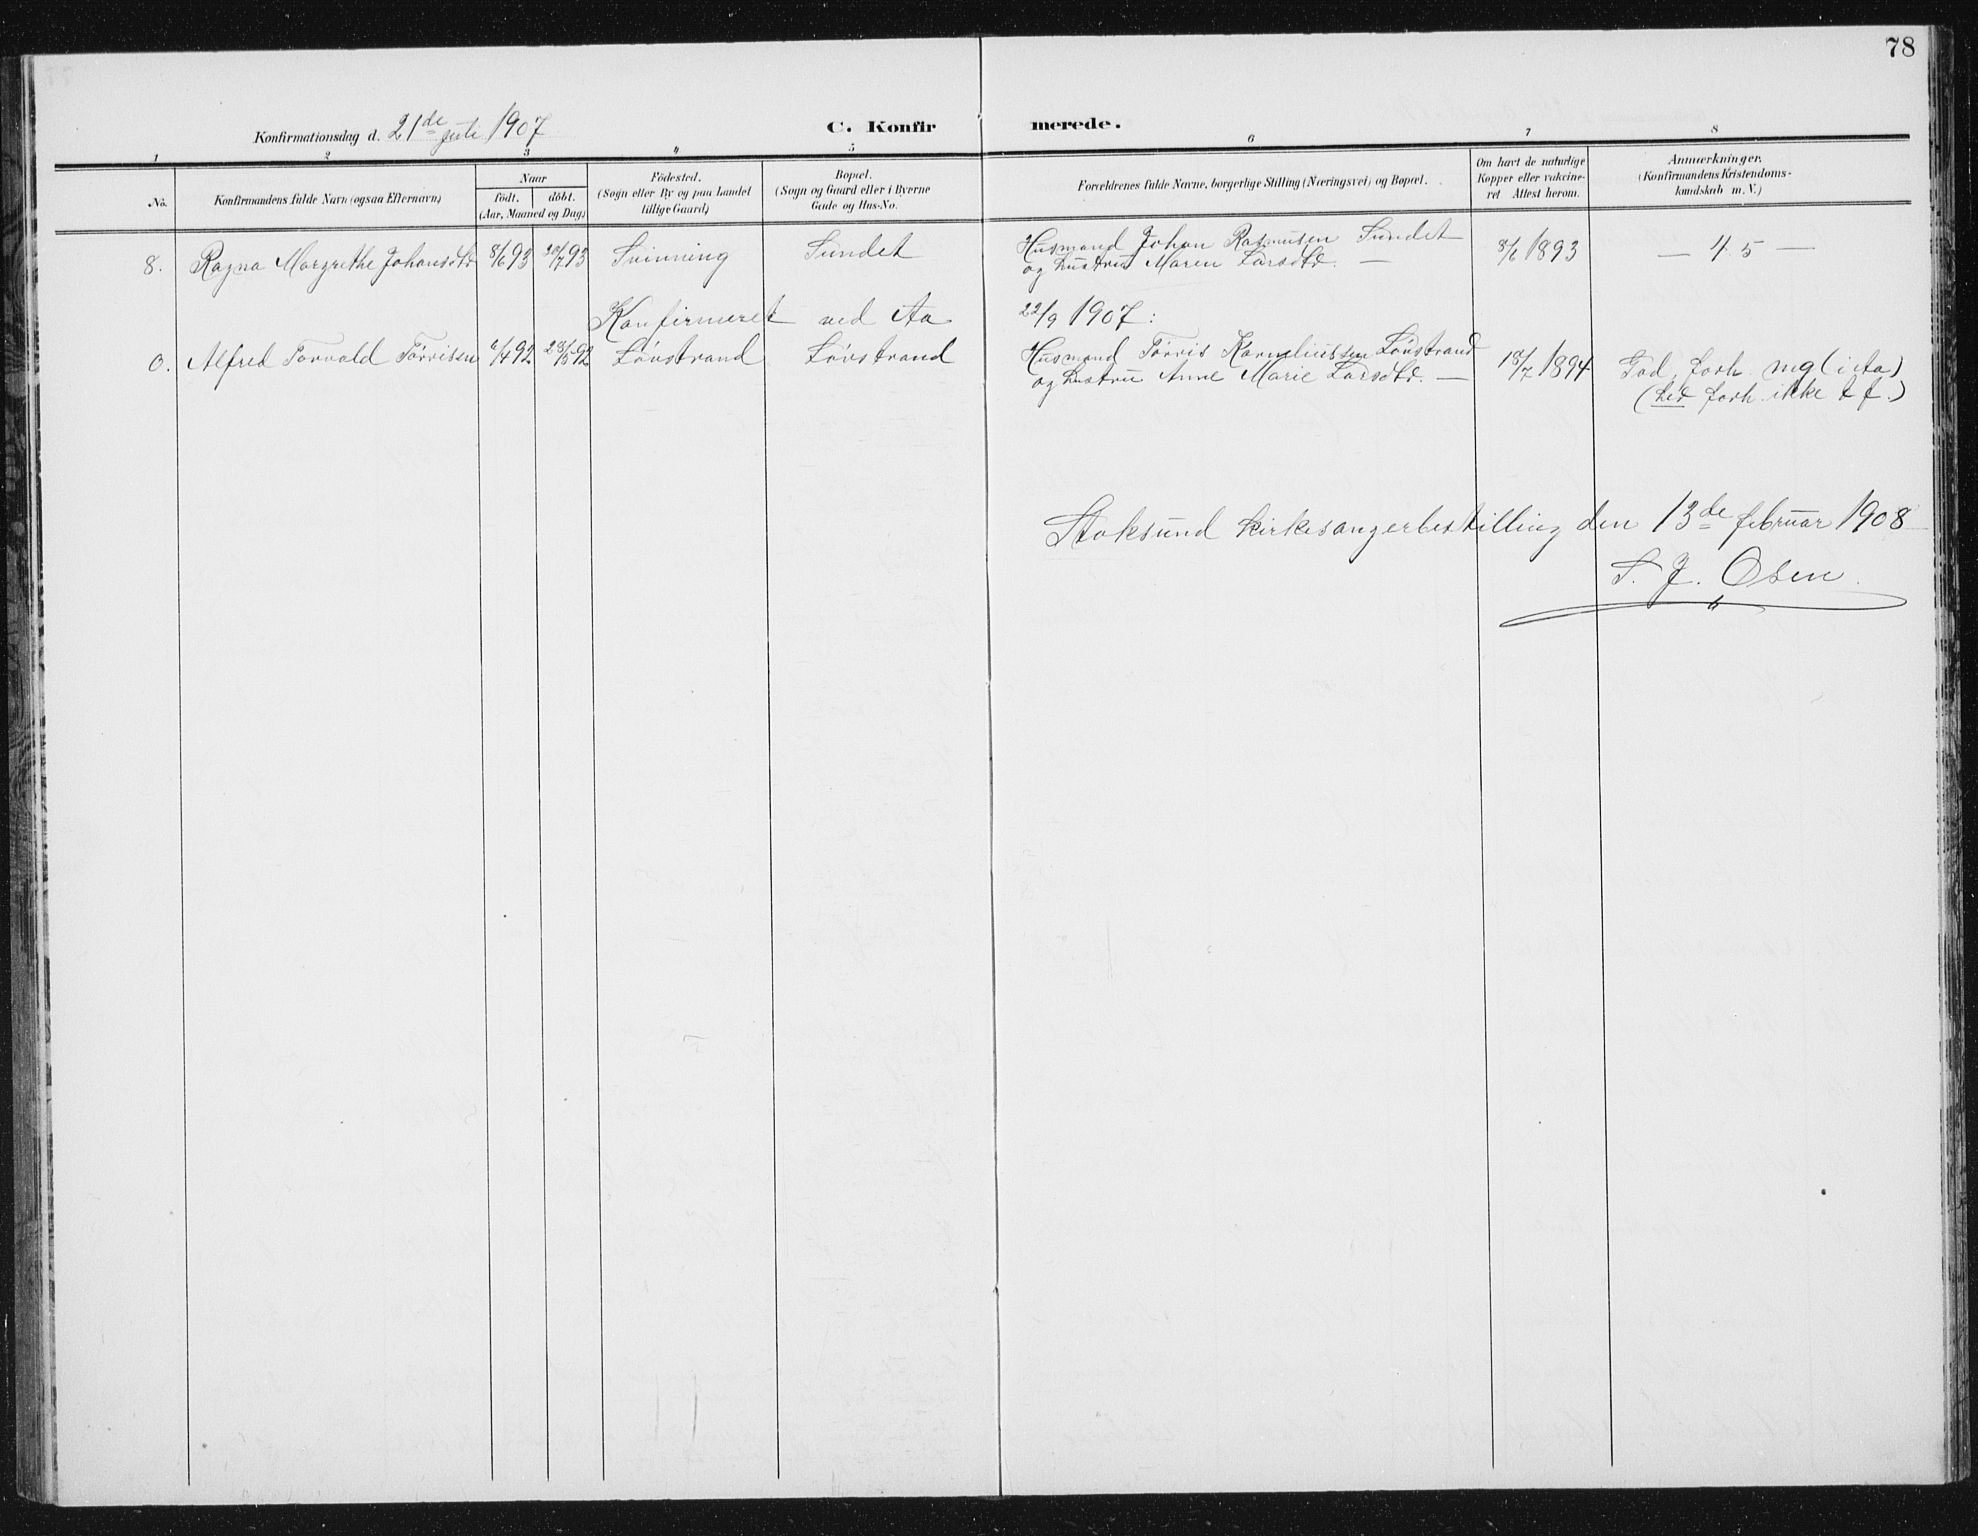 78
Konfirmationsdag d. 21de juli 1907
C. Konfirmerede.
1 2 3 4 5 6 7 8
No.
Konfirmandens fulde Navn (ogsaa Efternavn)
Naar
födt. döbt.
(Aar, Maaned og Dag)
Födested.
(Sogn eller By og paa Landet
tillige Gaard)
Bopæl.
(Sogn og Gaard eller i Byerne
Gade og Hus-No.
Forældrenes fulde Navne, borgerlige Stilling (Næringsvei) og Bopæl.
Om havt de naturlige
Kopper eller vakcine-
ret Attest herom.
Anmærkninger.
(Konfirmandens Kristendoms-
kundskab m. V.)
8. Ragna Margrethe Johansdtr 8/6 93 30/7 93 Svinning Sundet Husmand Johan Rasmusen Sundet 8/6 1893 — 4.5 —
og hustru Maren Larsdtr. —
Konfirmeret ved Aa 22/9 1907:
0. Alfred Torvald Törrissen 6/4 92 28/5 92 Lövstrand Lövstrand Husmand Törris Korneliussen Lövstrand 18/7 1894 Tad. forh. mg (i Aa)
og hustru Anne Marie Larsdtr. — (Led forh. ikke t f.)
Stoksund kirkesangerbestilling den 13de februar 1908
S. J. Osen.